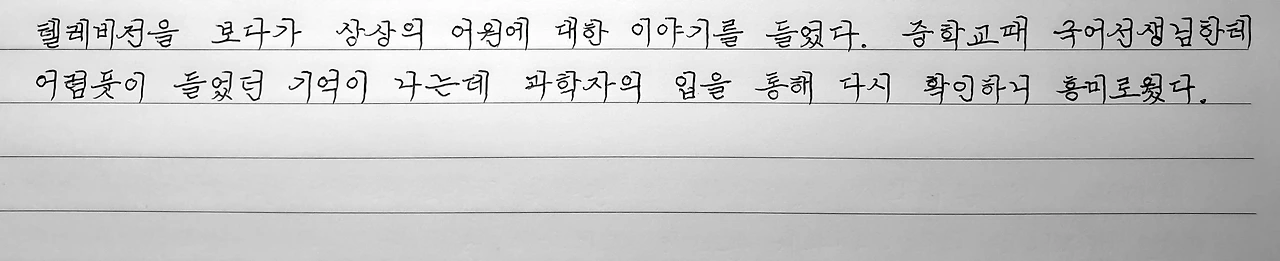 텔레비전을 보다가 상상의 어원에 대한 이야기를 들었다. 중학교때 국어선생님한테
어렴풋이 들었던 기억이 나는데 과학자의 입을 통해 다시 확인하니 흥미로웠다.